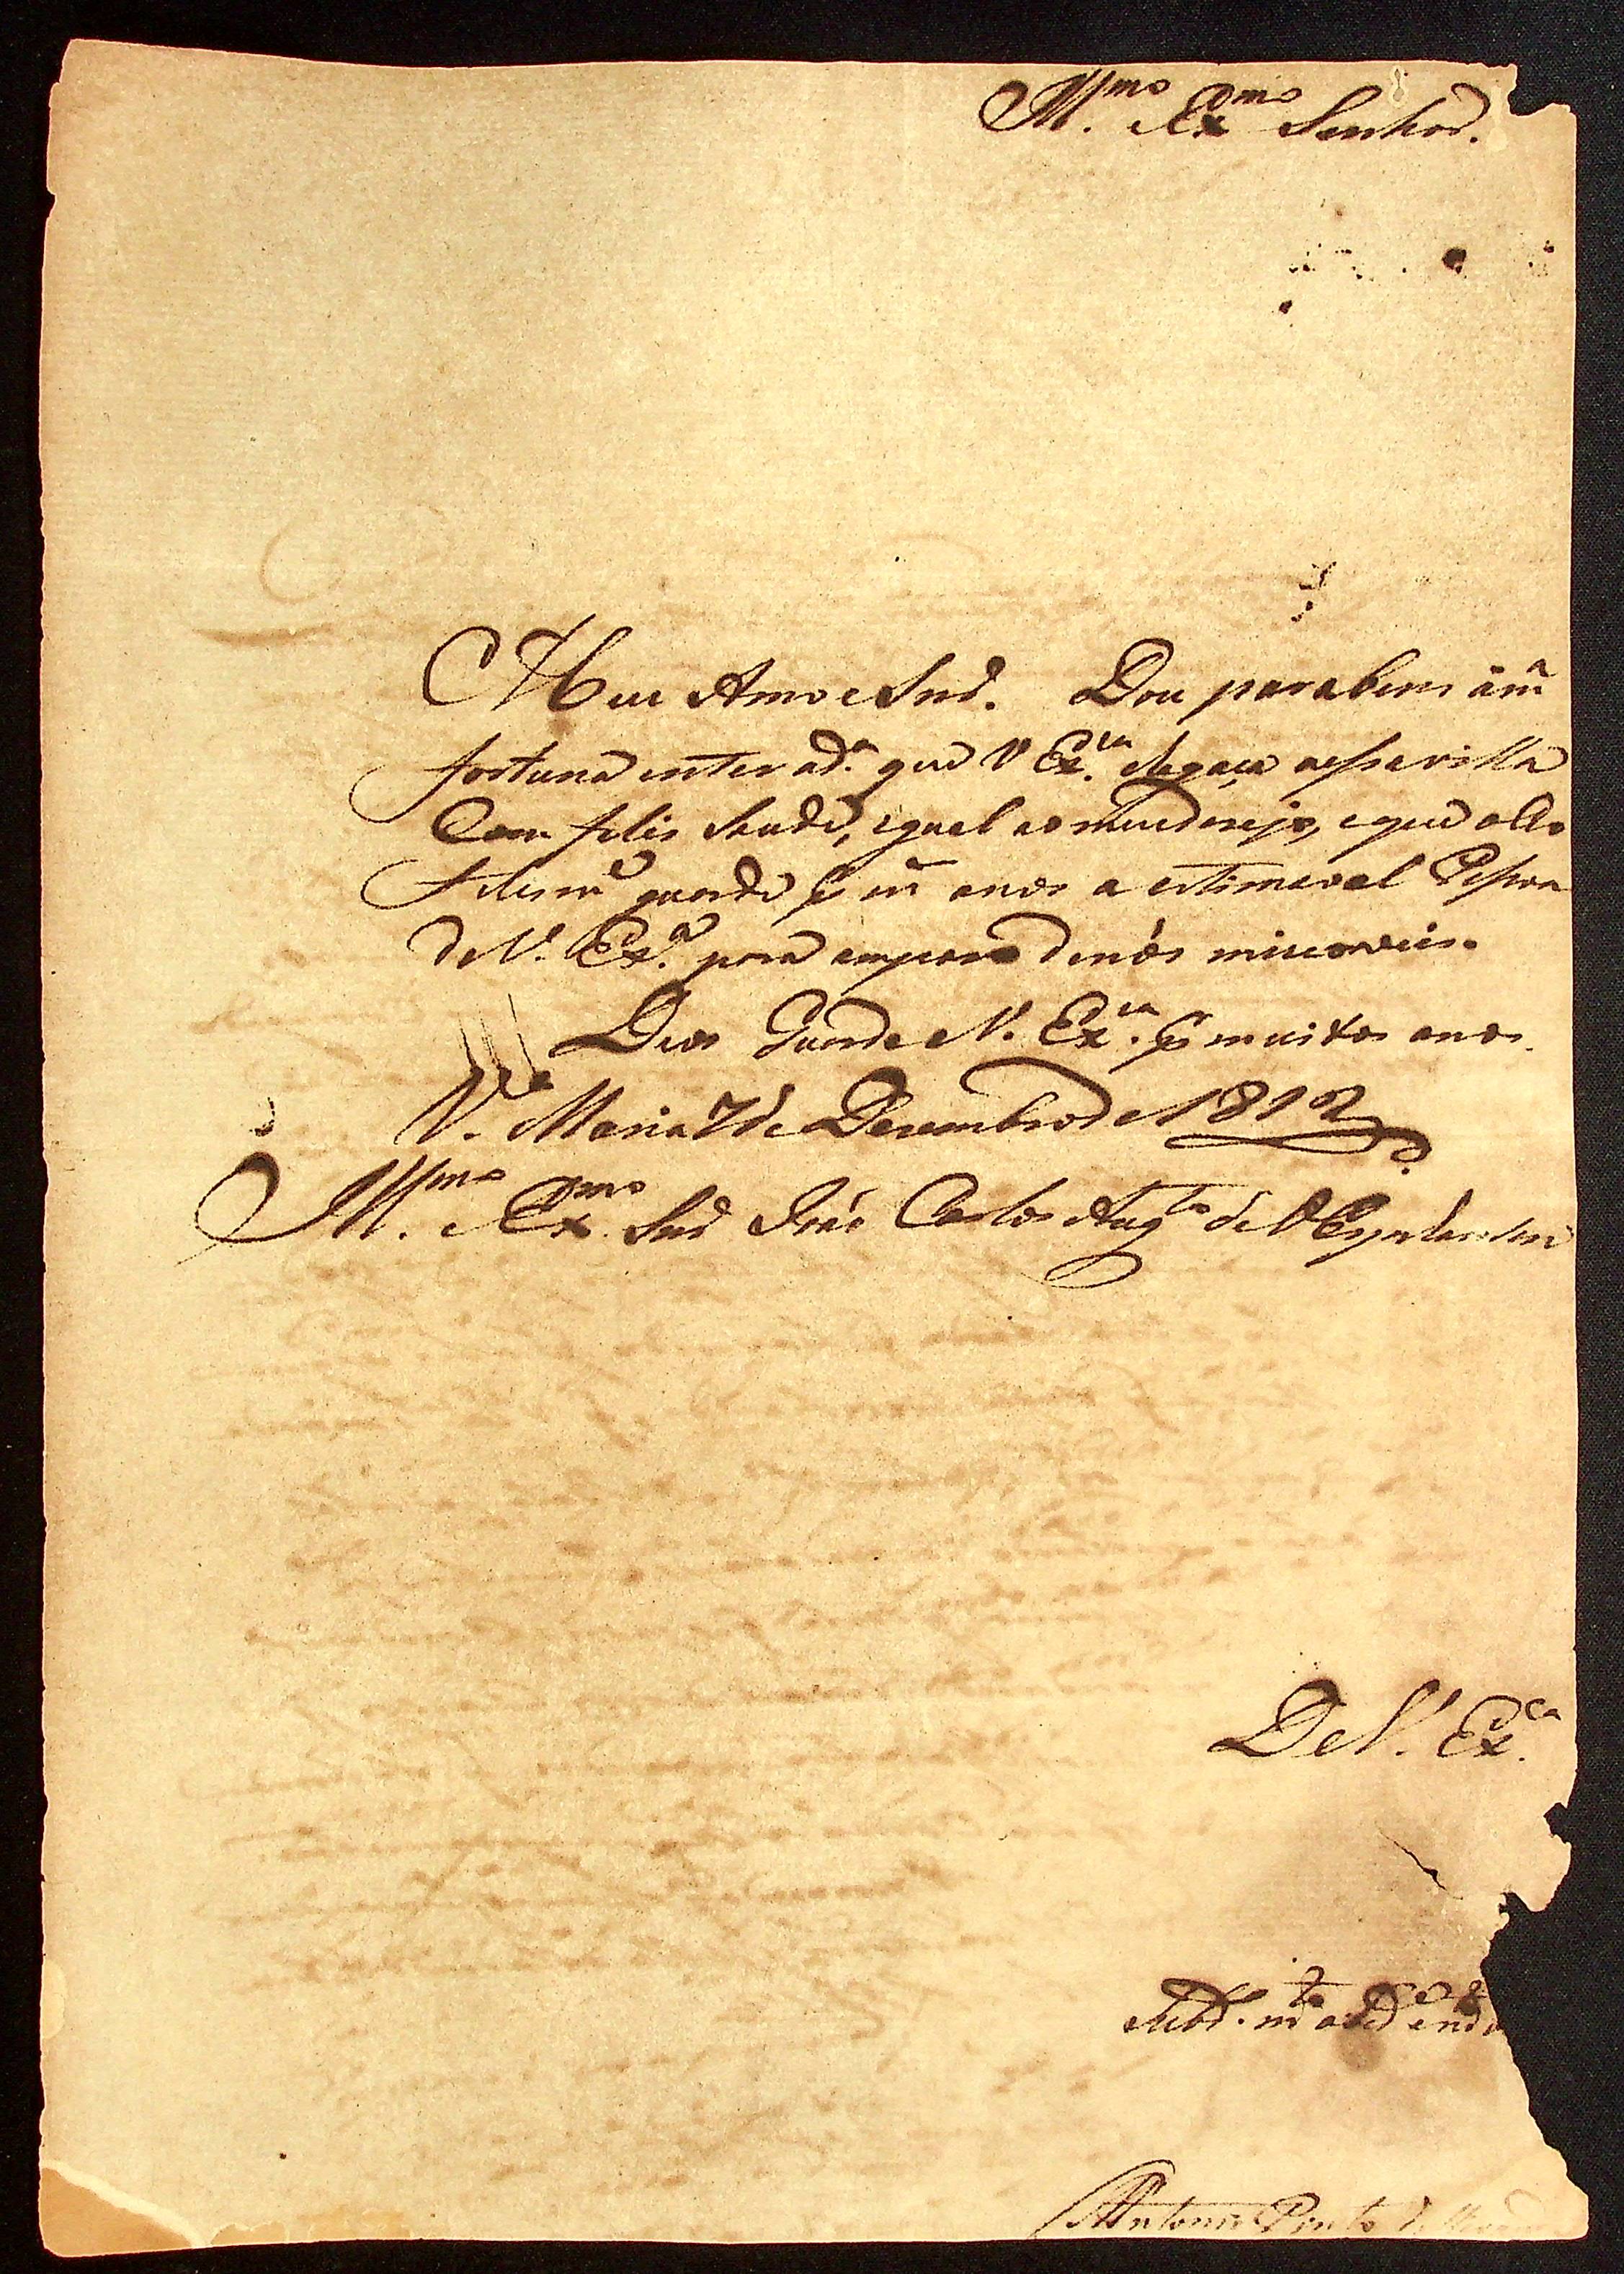 Ill.mo e Ex.mo Senhor.
Meu Amo e Snr. Dou parabens á m.a
fortuna em ter ad.a que V Ex.cia chegaçe a essa villa
Com felis Saude, igual ao meu dezejo, e que o Ceo
guarde por m.s anos a estimavel Pessoa
de V. Ex.a para amparo de nós miseraveis.
Deos Guarde V. Ex.cia por muitos anos.
V.a Maria 7 de Dezembro de 1812
Ill.mo e Ex.mo Snr João Carlos Aug.to de Oeynhausen
De V. Ex.ca
Antonio Pinto